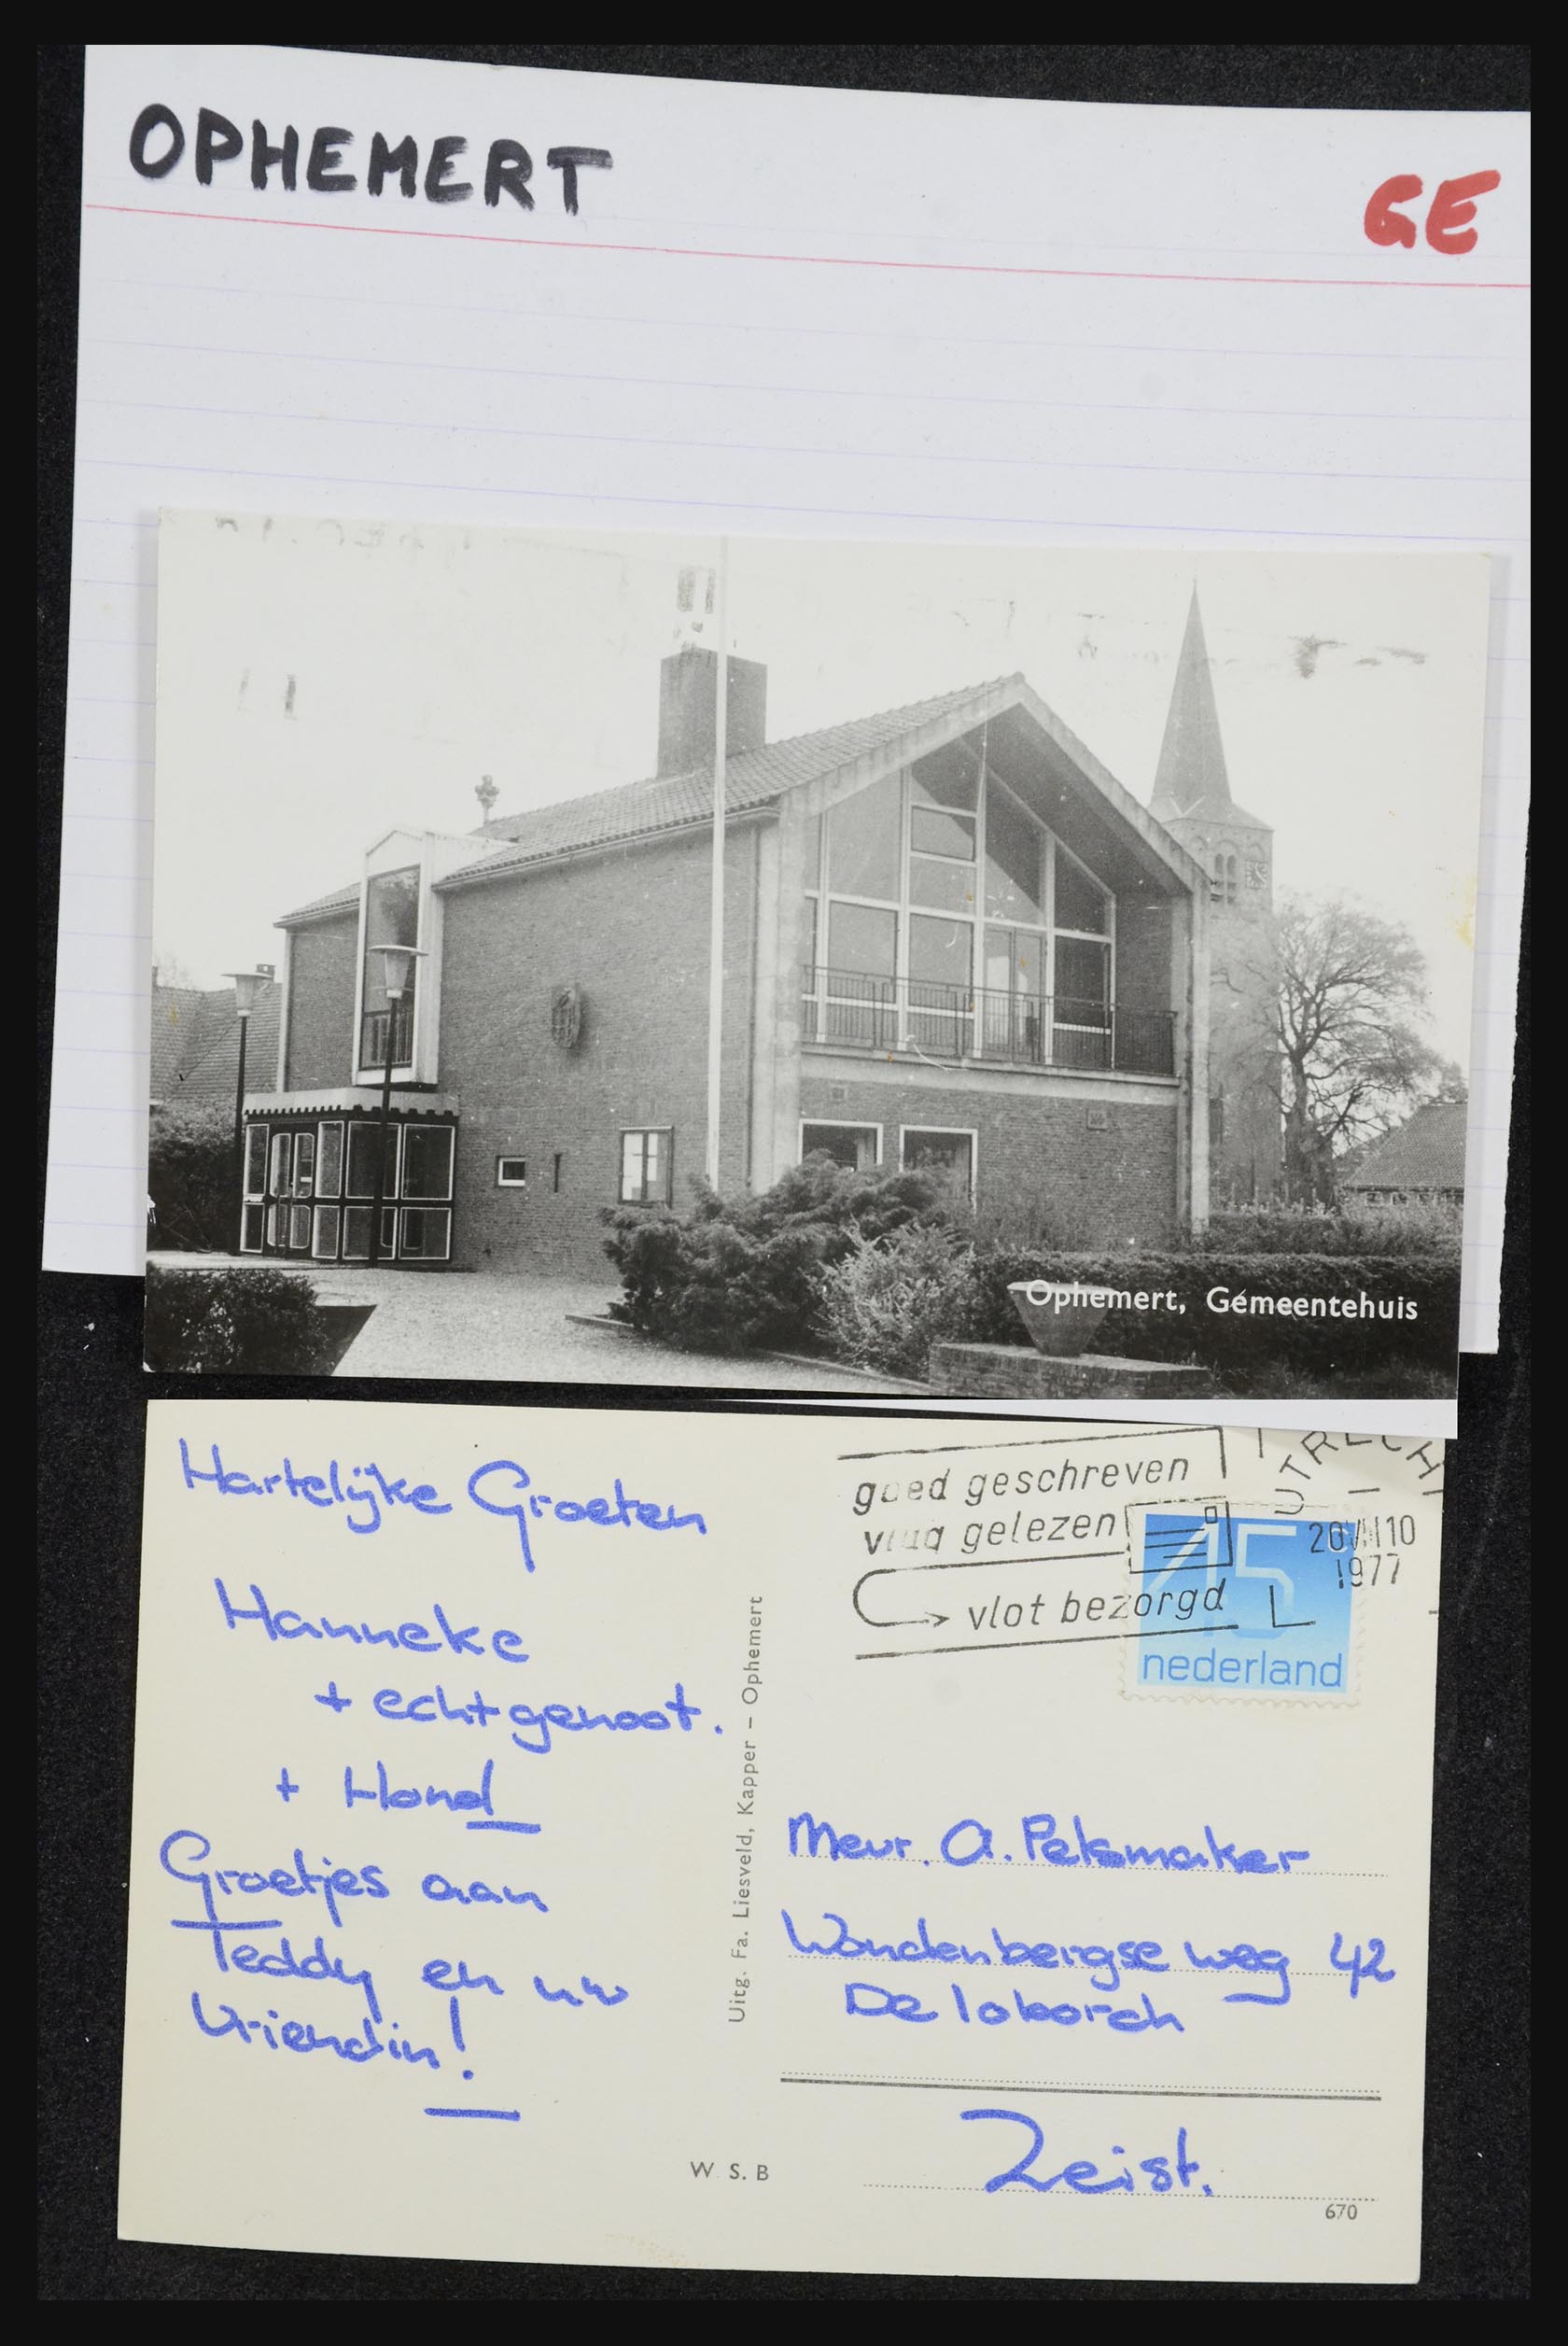 OPHEMERT
GE
Ophemert, Gemeentehuis
Hartelijke Groeten
Hanneke
+ echtgenoot.
+ Hond
Groetjes aan
Teddy en uw
Vriendin!
Uitg. Fa. Liesveld, Kapper – Ophemert
W. S. B
goed geschreven
vlug gelezen
vlot bezorgd
UTRECHT
1977
45
nederland
Mevr. A. Petsmaker
Woudenbergse weg 42
De loborch
Zeist.
670